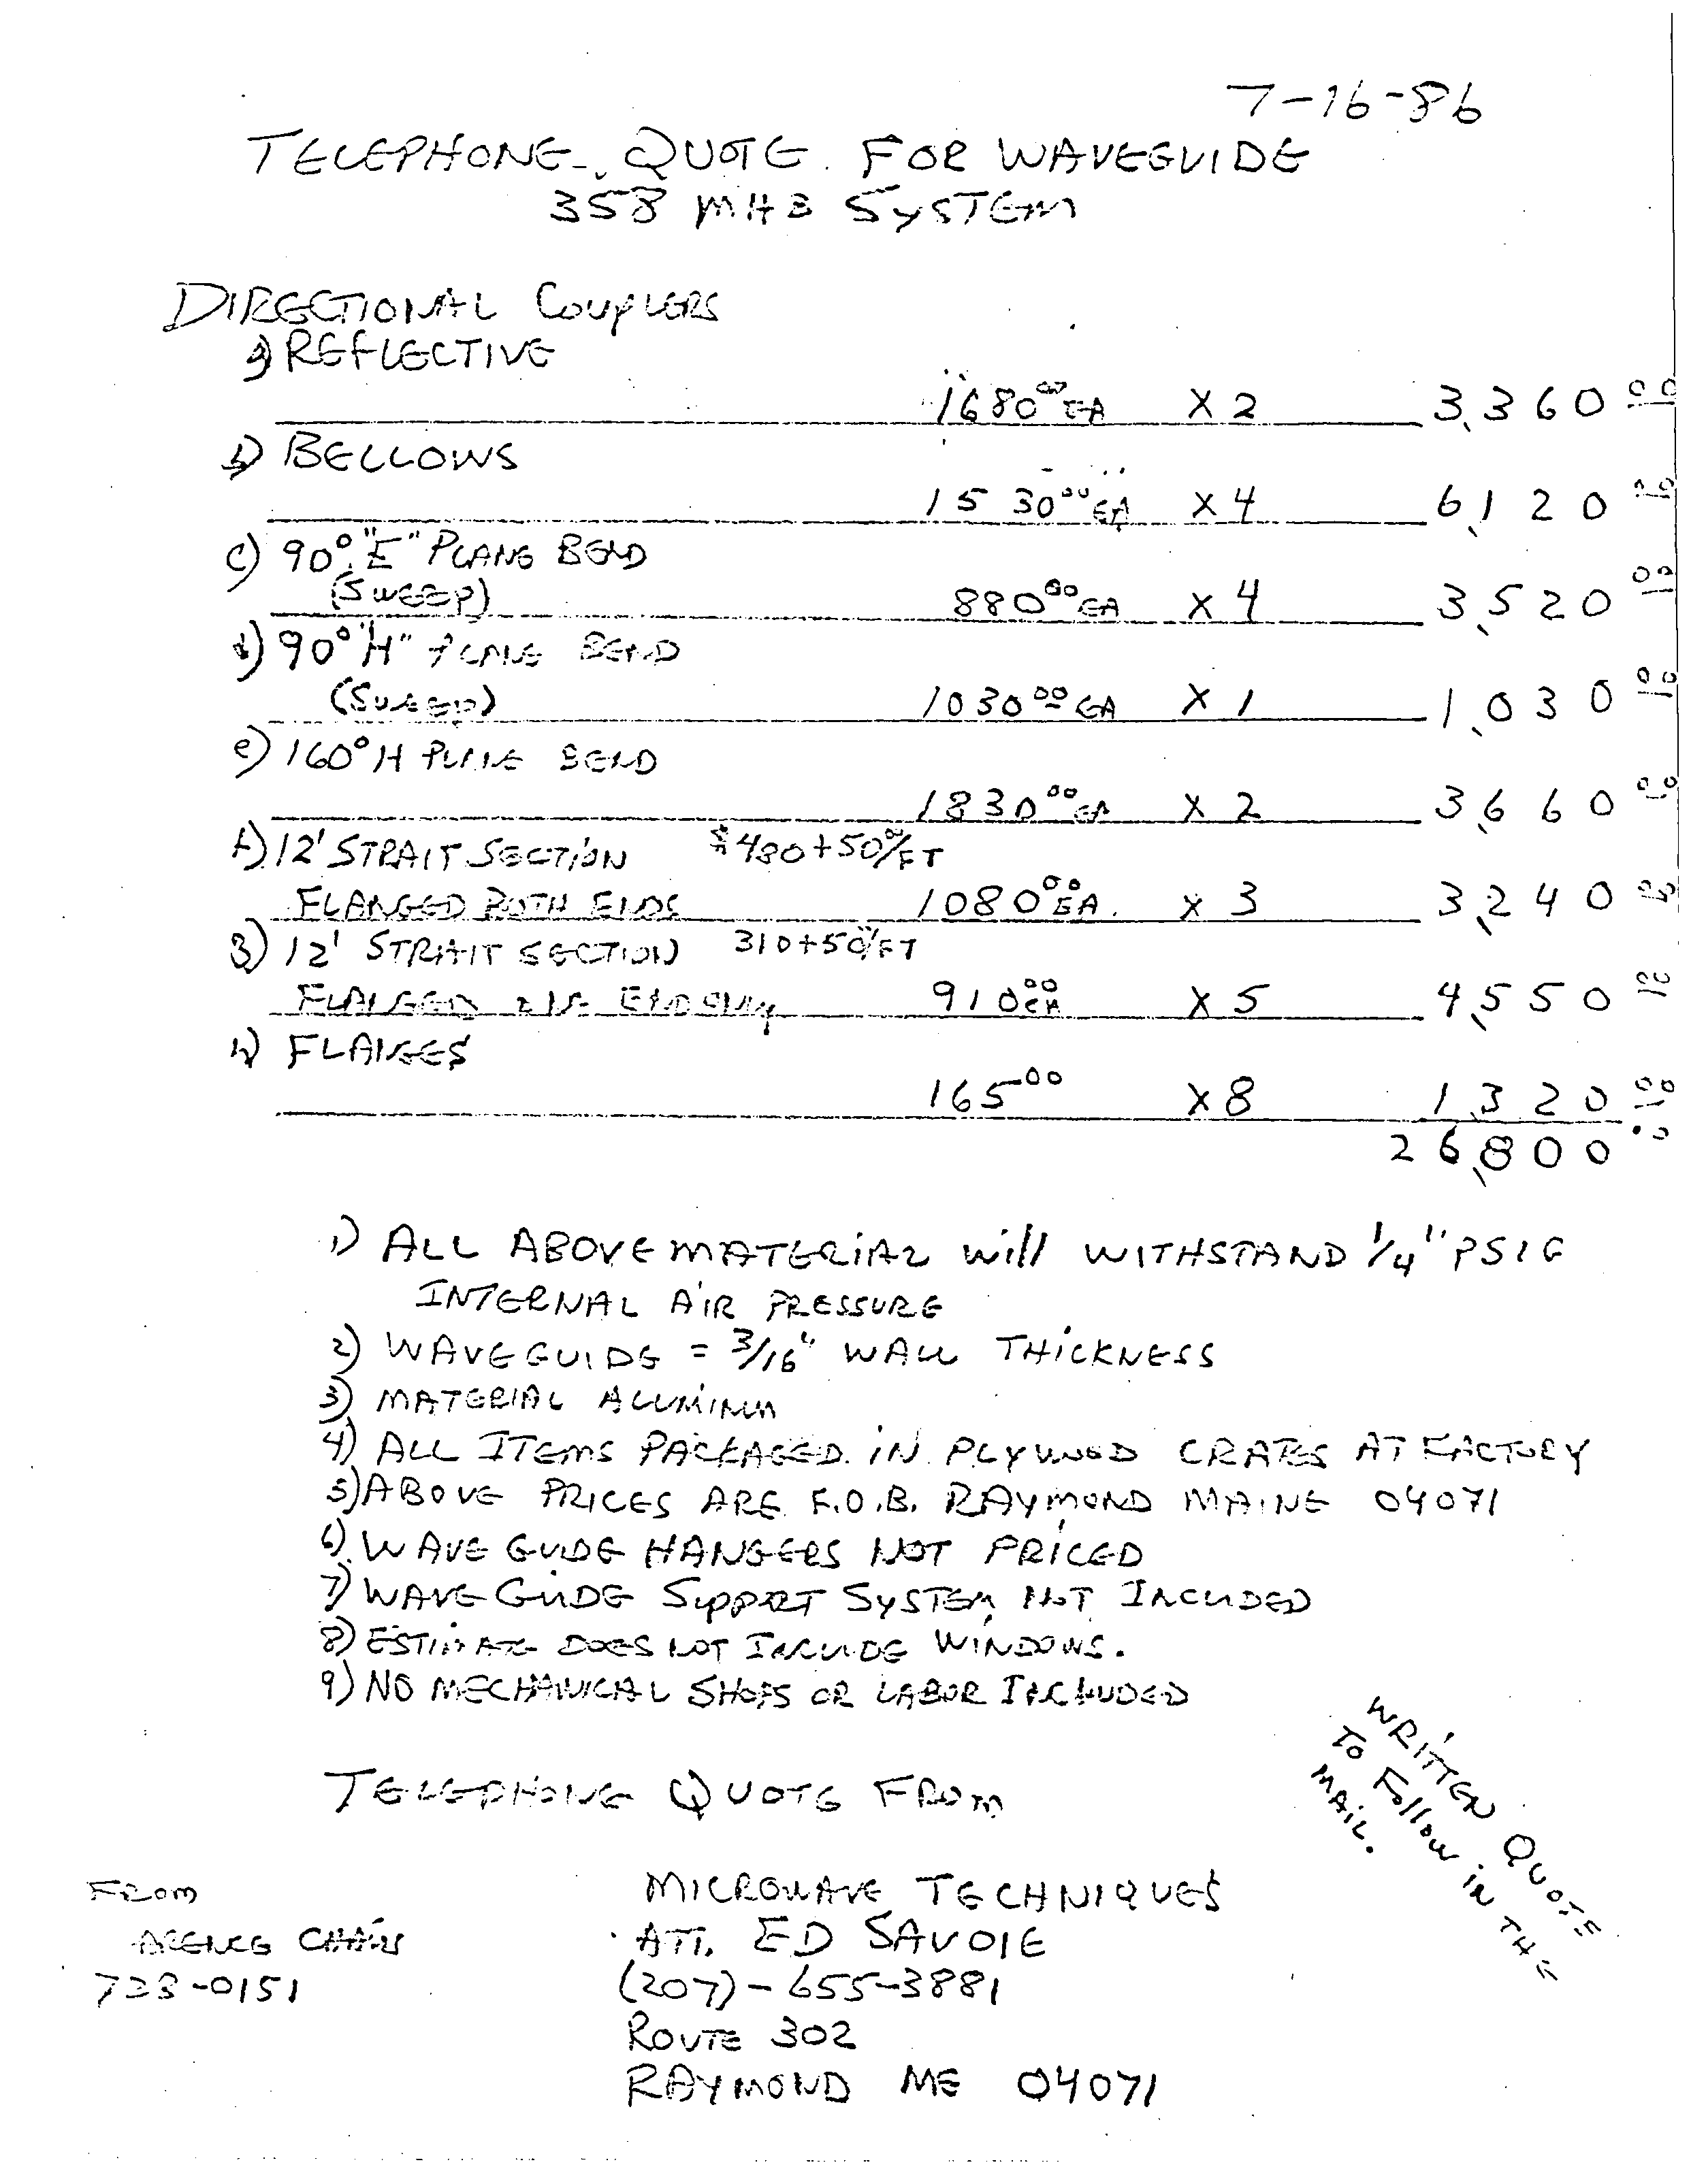 7-16-86
TELEPHONE QUOTE FOR WAVEGUIDE
358 MHz SYSTEM
DIRECTIONAL COUPLERS
a) REFLECTIVE
1680.00 EA X 2 3,360.00
b) BELLOWS
1530.00 EA X 4 6,120.00
c) 90° "E" PLANE BEND
(SWEEP) 880.00 EA X 4 3,520.00
d) 90° "H" PLANE BEND
(SWEEP) 1030.00 EA X 1 1,030.00
e) 160° H PLANE BEND
1830.00 EA X 2 3,660.00
f) 12' STRAIT SECTION $480+50.00/FT
FLANGED BOTH ENDS 1080.00 EA. X 3 3,240.00
g) 12' STRAIT SECTION 310+50.00/FT
FLANGED ONE END ONLY 910.00 EA X 5 4,550.00
h) FLANGES
165.00 X 8 1,320.00
26,800.00
1) ALL ABOVE MATERIAL will WITHSTAND 1/4" PSIG
INTERNAL AIR PRESSURE
2) WAVEGUIDE = 3/16" WALL THICKNESS
3) MATERIAL ALUMINUM
4) ALL ITEMS PACKAGED IN PLYWOOD CRATES AT FACTORY
5) ABOVE PRICES ARE F.O.B. RAYMOND MAINE 04071
6) WAVE GUIDE HANGERS NOT PRICED
7) WAVE GUIDE SUPPORT SYSTEM NOT INCLUDED
8) ESTIMATE DOES NOT INCLUDE WINDOWS.
9) NO MECHANICAL SHOPS OR LABOR INCLUDED
WRITTEN QUOTE
TO Follow IN THE
MAIL.
TELEPHONE QUOTE FROM
FROM
728-0151
MICROWAVE TECHNIQUES
ATT. ED SAVOIE
(207)-655-3881
ROUTE 302
RAYMOND ME 04071